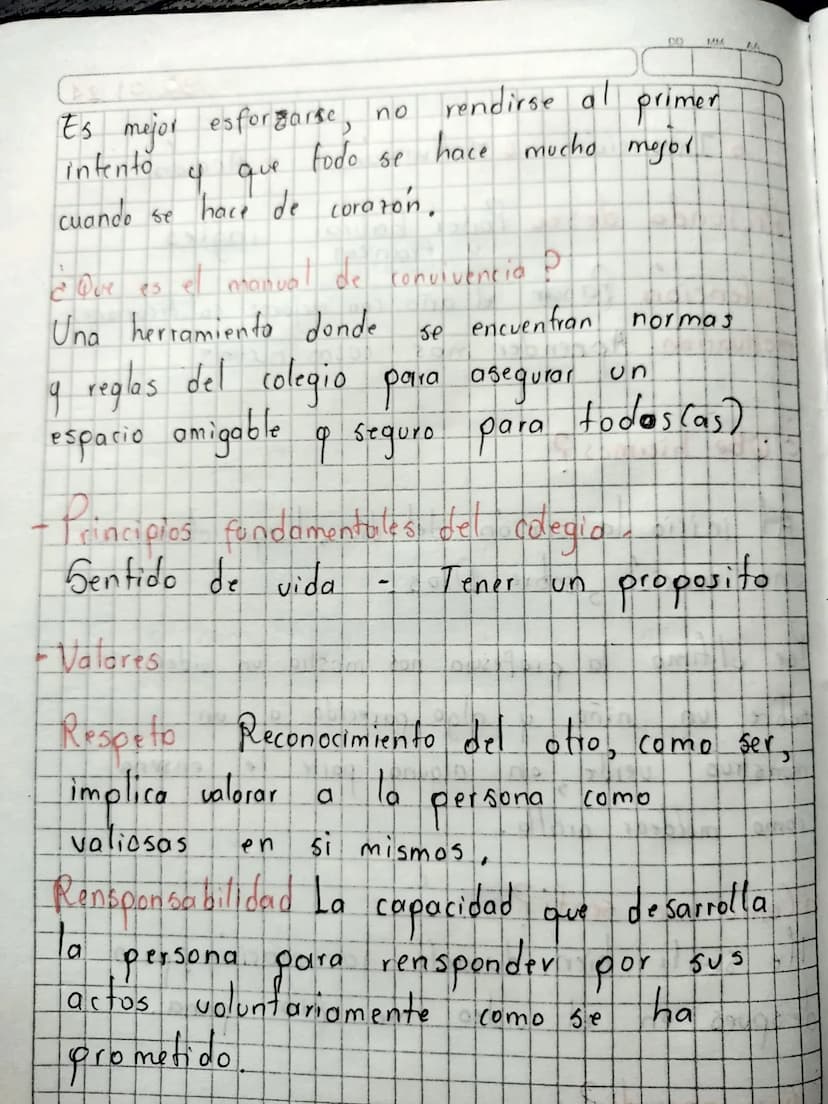 DD MM AA
Es mejor esforzarse, no rendirse al primer
intento y que todo se hace mucho mejor
cuando se hace de corazón.
¿Que es el manual de convivencia?
Una herramiento donde se encuentran normas
y reglas del colegio para asegurar un
espacio amigable y seguro para todos(as).
- Principios fundamentales del colegio.
Sentido de vida - Tener un proposito
- Valores
Respeto Reconocimiento del otro, como ser,
implica valorar a la persona como
valiosas en si mismos.
Rensponsabilidad La capacidad que desarrolla
la persona para rensponder por sus
actos voluntariamente como se ha
prometido.